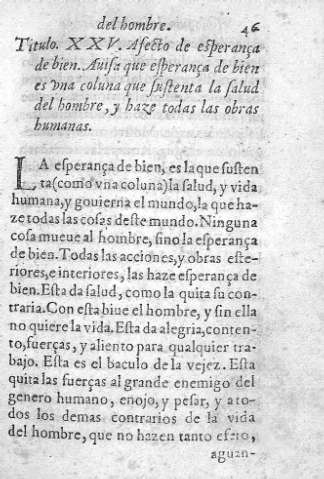 del hombre. 46
Titulo. XXV. Afecto de esperança
de bien. Auisa que esperança de bien
es vna coluna que sustenta la salud
del hombre, y haze todas las obras
humanas.
LA esperança de bien, es la que susten
ta(como vna coluna)la salud, y vida
humana, y gouierna el mundo, la que ha-
ze todas las cosas deste mundo. Ninguna
cosa mueue al hombre, sino la esperança
de bien. Todas las acciones, y obras este-
riores, e interiores, las haze esperança de
bien. Esta da salud, como la quita su con-
traria. Con esta biue el hombre, y sin ella
no quiere la vida. Esta da alegria, conten-
to, fuerças, y aliento para qualquier tra-
bajo. Esta es el baculo de la vejez. Esta
quita las fuerças al grande enemigo del
genero humano, enojo, y pesar, y a to-
dos los demas contrarios de la vida
del hombre, que no hazen tanto efeto,
aguan-